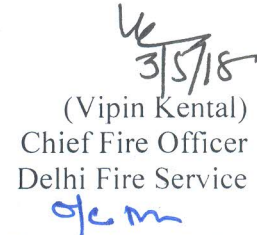 3/5/18
(Vipin Kental)
Chief Fire Officer
Delhi Fire Service